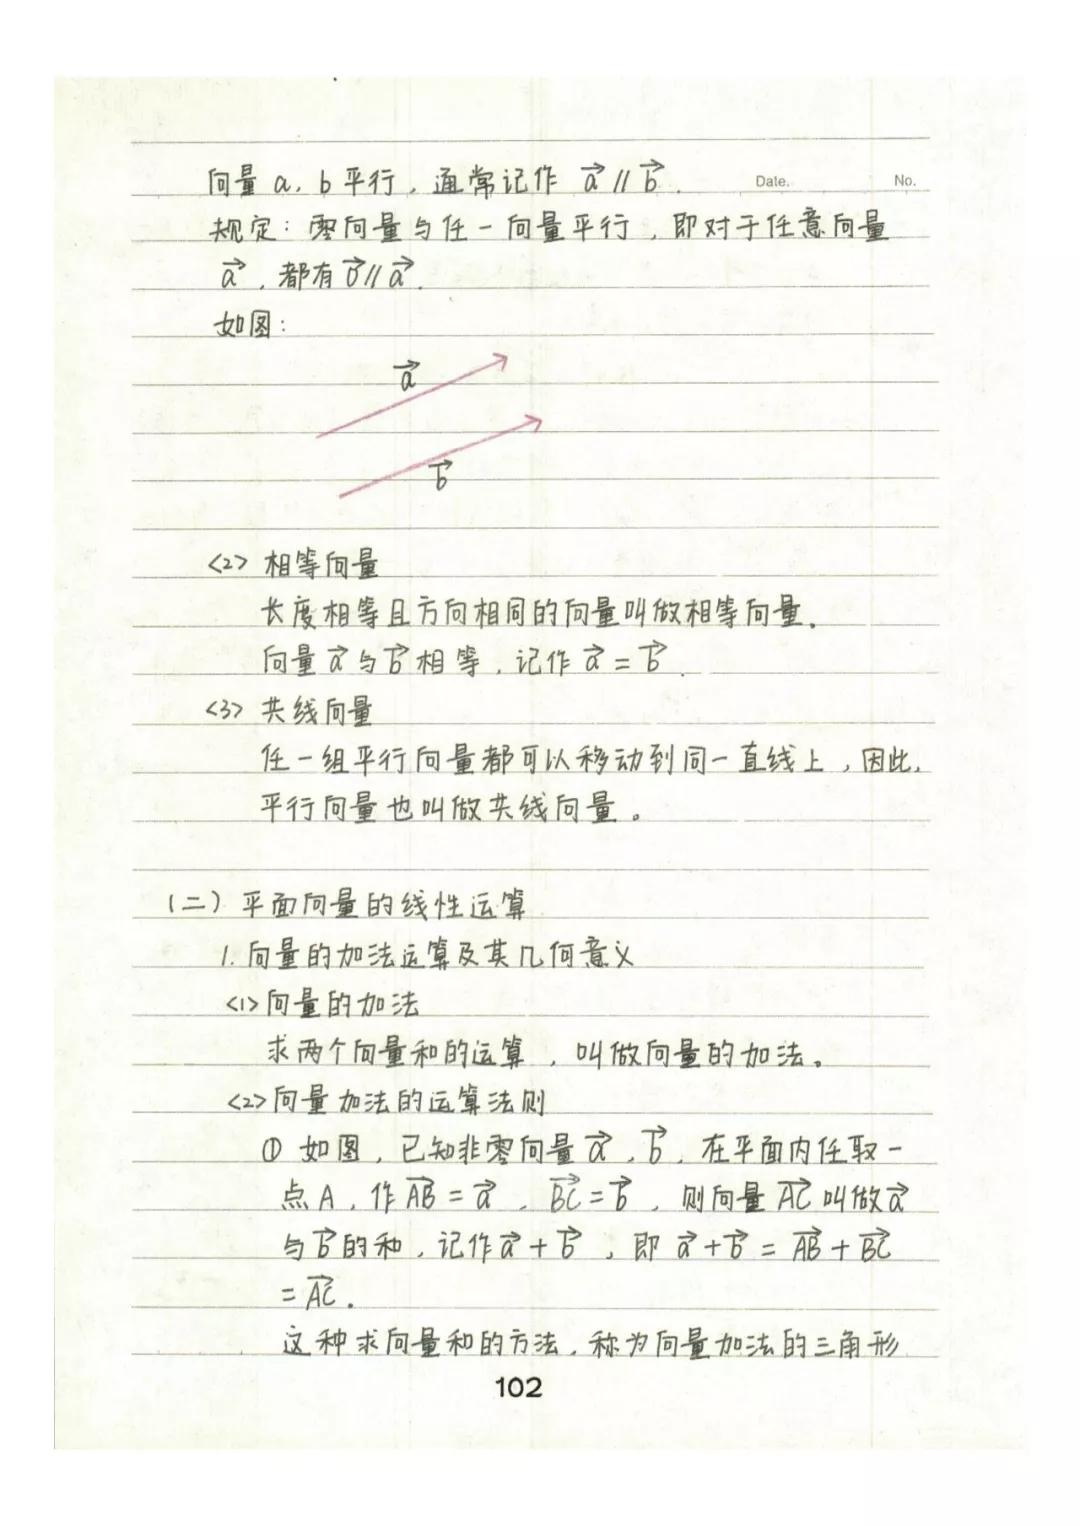 向量 a, b 平行，通常记作 a⃗ // b⃗.
Date. No.
规定：零向量与任一向量平行，即对于任意向量
a⃗，都有 0⃗ // a⃗.
如图：
a⃗
b⃗
<2> 相等向量
长度相等且方向相同的向量叫做相等向量.
向量 a⃗ 与 b⃗ 相等，记作 a⃗ = b⃗.
<3> 共线向量
任一组平行向量都可以移动到同一直线上，因此,
平行向量也叫做共线向量。
(二) 平面向量的线性运算
1. 向量的加法运算及其几何意义
<1> 向量的加法
求两个向量和的运算，叫做向量的加法。
<2> 向量加法的运算法则
① 如图，已知非零向量 a⃗, b⃗, 在平面内任取一
点A，作 A͞B⃗ = a⃗，B͞C⃗ = b⃗，则向量 A͞C⃗ 叫做 a⃗
与 b⃗ 的和，记作 a⃗ + b⃗，即 a⃗ + b⃗ = A͞B⃗ + B͞C⃗
= A͞C⃗.
这种求向量和的方法，称为向量加法的三角形
102